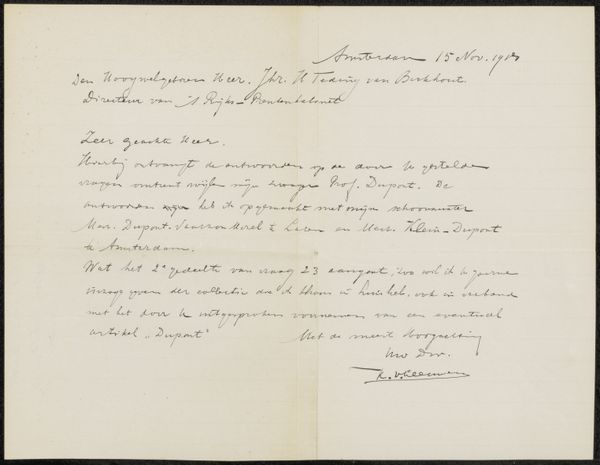 Amsterdam 15 Nov. 191
Den Hoogwelgeboren Heer. Jhr. H Teding van Berkhout
Directeur van 's Rijks-Prentenkabinet
Zeer geachte Heer.
Hierbij ontvangt de antwoorden op de door U gestelde
vragen omtrent wijlen mijn zwager Prof. Dupont. De
antwoorden heb ik opgemaakt met mijn schoonzuster
Mevr. Dupont. te Laren en Mevr. Klein-Dupont
te Amsterdam.
Wat het 2e gedeelte van vraag 23 aangaat, zoo wil ik U gaarne
inzage geven der collectie die ik thans in huis heb, ook in verband
met het door U uitgesproken voornemen van een eventueel
artikel „Dupont"
Met de meeste Hoogachting
Uw Dw.